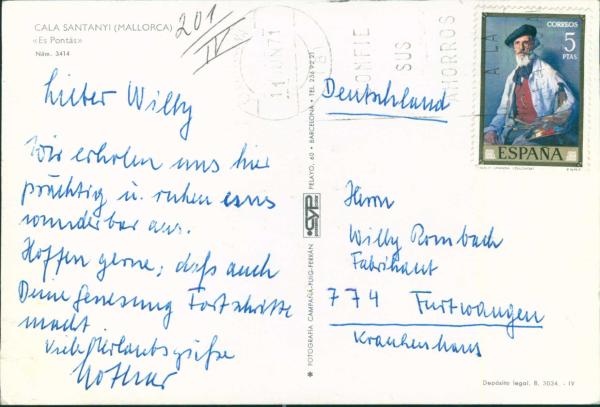 CALA SANTANYI (MALLORCA)
«Es Pontás»
Núm. 3414
201/IV
Lieber Willy
Wir erholen uns hier
prächtig u. ruhen uns
wunderbar aus.
Hoffen gerne, daß auch
Deine Genesung Fortschritte
macht.
Viele Urlaubsgrüße
Lothar
PELAYO, 60 • BARCELONA • TEL.
cyp
* FOTOGRAFIA CAMPAÑÁ-PUIG-FERRÁN
SUS
AHORROS
A LA
CORREOS
5
PTAS
ESPAÑA
Deutschland
Herrn
Willy Rombach
Fabrikant
774 Furtwangen
Krankenhaus
Depósito legal. B. 3034. - IV